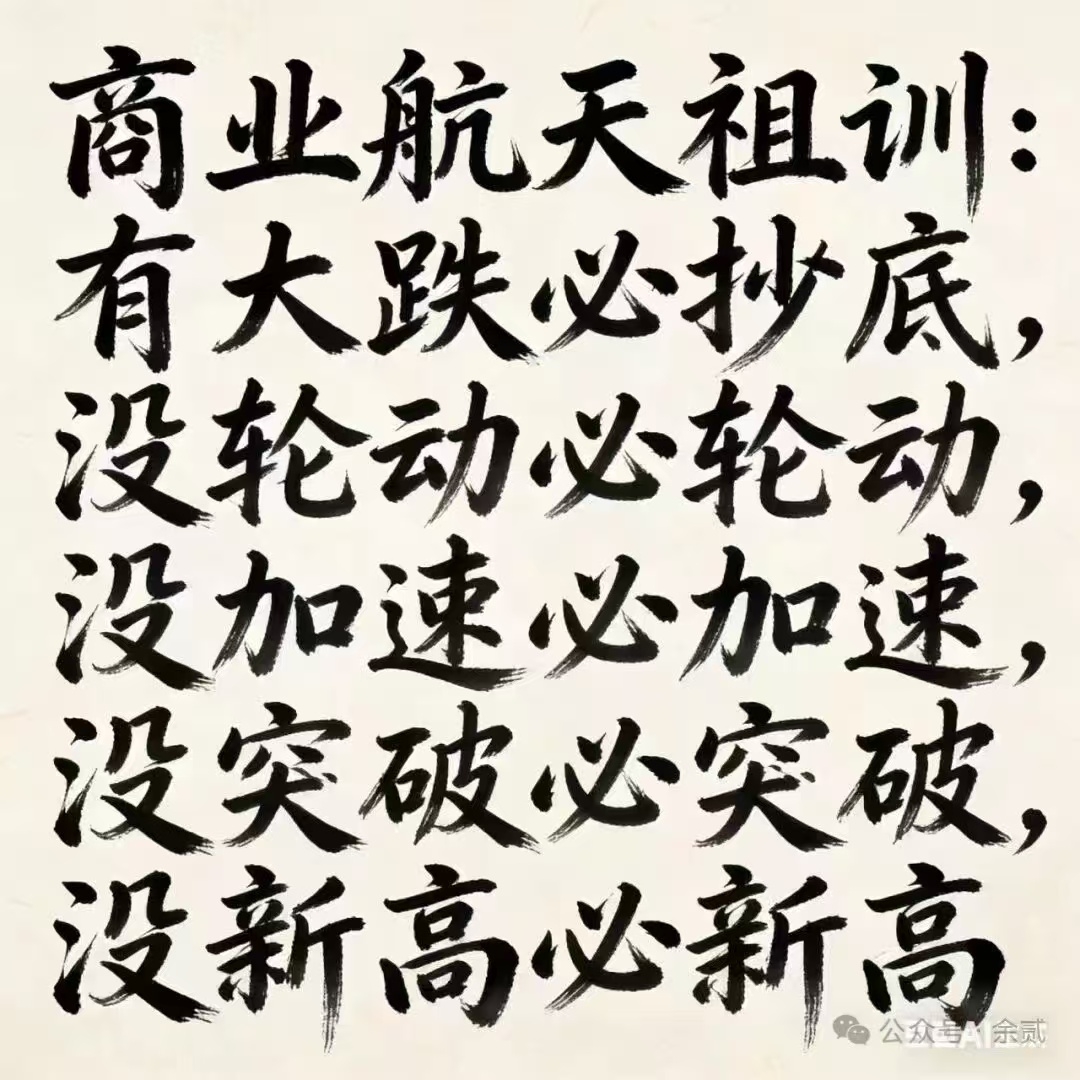 商业航天祖训：
有大跌必抄底，
没轮动必轮动，
没加速必加速，
没突破必突破，
没新高必新高
公众号·余贰